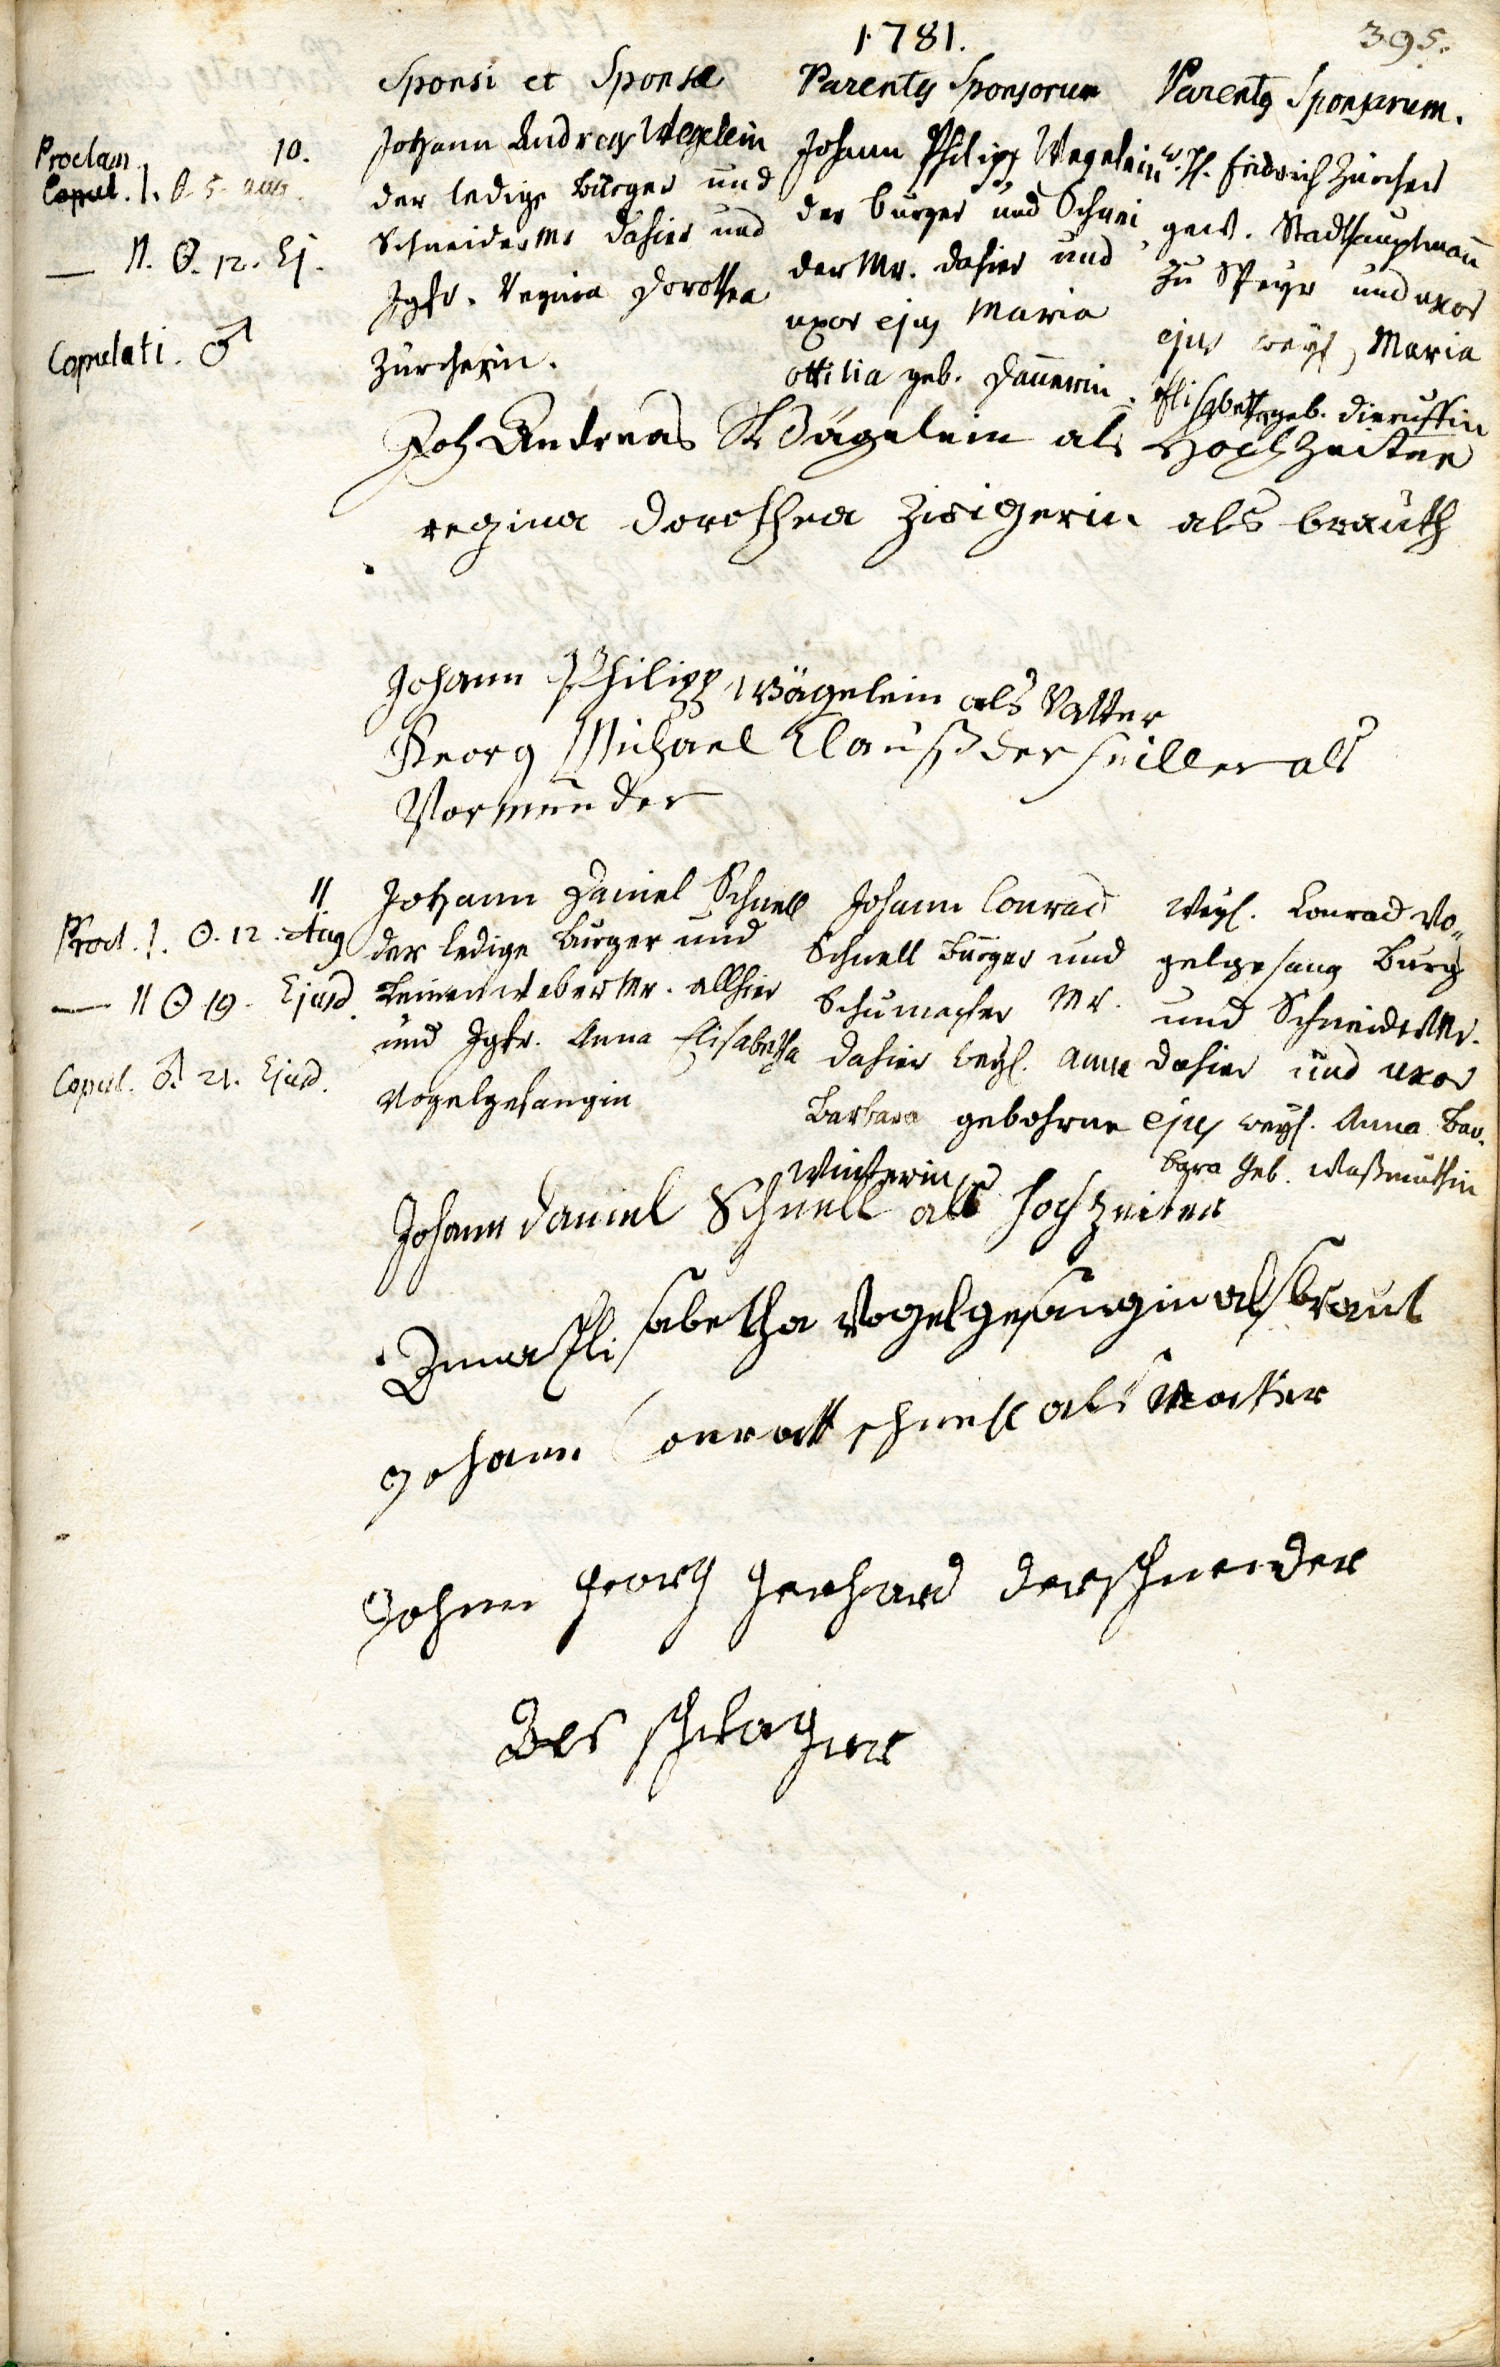 1781.
395.
Sponsi et Sponsæ
Parentes Sponsorum
Parentes Sponsarum.
Proclam.
10.
Copul. I. ☉. 5. aug.
— II. ☉. 12. Ej.
Copulati. ♂
Johann Andreas Wegelein
der ledige Burger und
Schneider Mr dahier und
Jgfr. Regina Dorothea
Zürcherin.
Johann Philipp Wegelein
der burger und Schnei
der Mr. dahier und
uxor ejus Maria
Ottilia geb.
w. H. Fridrich Zürcher
gew. Stadthauptmañ
zu Speyr und uxor
ejus weyl, Maria
Elisabetha geb. Dieruffin
Joh Andreas Wägelein als Hochzeiter
regina dorothea Zirigerin als brauth
Johann Philipp Wägelein als Vatter
Georg Michael Clauß der seiller als
Vormunder
11.
Procl. I. ☉. 12. Aug
— II ☉ 19. Ejusd.
Copul. ♂. 21. Ejusd.
Johann Daniel Schnell
der ledige Burger und
Leinenweber Mr. allhier
und Jgfr. Anna Elisabetha
Vogelgesangin
Johann Conrad
Schnell Burger und
Schumacher Mr.
dahier weyl. Anna
Barbara gebohrne
Winterin
Weyl. Conrad Vo„
gelgesang Burg
und Schneider Mr.
dahier und uxor
ejus weyl. Anna Bar„
bara geb. Waßmuthin
Johann Daniel Schnell als hochzeiter
Anna Elisabetha Vogelgesangin als braut
Johann Conratt schnell als Vatter
Johann Georg Gerhard der schneider
Als